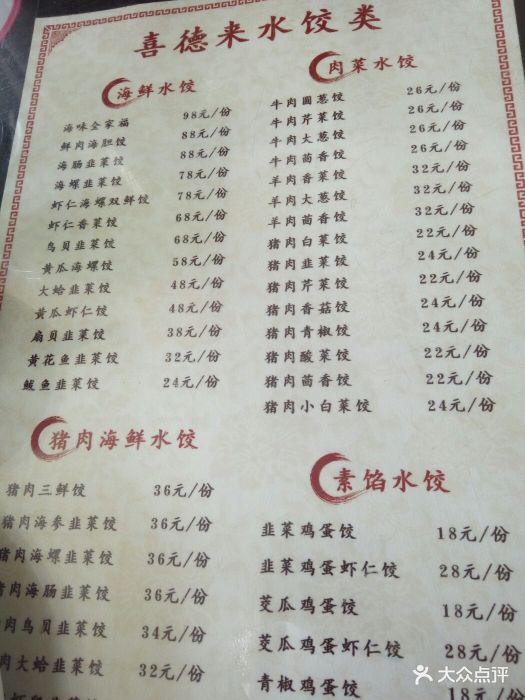 喜德来水饺类
海鲜水饺
海味全家福 98元/份
鲜肉海胆饺 88元/份
海肠韭菜饺 88元/份
海螺韭菜饺 78元/份
虾仁海螺双鲜饺 78元/份
虾仁香菜饺 68元/份
鸟贝韭菜饺 68元/份
黄瓜海螺饺 58元/份
大蛤韭菜饺 48元/份
黄瓜虾仁饺 48元/份
扇贝韭菜饺 38元/份
黄花鱼韭菜饺 32元/份
鲅鱼韭菜饺 24元/份
肉菜水饺
牛肉圆葱饺 26元/份
牛肉芹菜饺 26元/份
牛肉大葱饺 26元/份
牛肉茴香饺 26元/份
羊肉香菜饺 32元/份
羊肉大葱饺 32元/份
羊肉茴香饺 32元/份
猪肉白菜饺 22元/份
猪肉韭菜饺 24元/份
猪肉芹菜饺 22元/份
猪肉香菇饺 24元/份
猪肉青椒饺 24元/份
猪肉酸菜饺 22元/份
猪肉茴香饺 22元/份
猪肉小白菜饺 24元/份
猪肉海鲜水饺
猪肉三鲜饺 36元/份
猪肉海参韭菜饺 36元/份
猪肉海螺韭菜饺 36元/份
猪肉海肠韭菜饺 36元/份
肉鸟贝韭菜饺 34元/份
肉大蛤韭菜饺 32元/份
素馅水饺
韭菜鸡蛋饺 18元/份
韭菜鸡蛋虾仁饺 28元/份
茭瓜鸡蛋饺 18元/份
茭瓜鸡蛋虾仁饺 28元/份
青椒鸡蛋饺 18元/份
大众点评